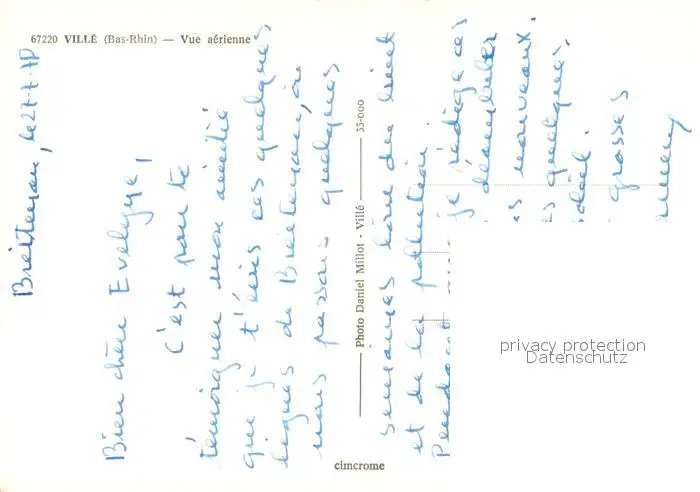 67220 VILLÉ (Bas-Rhin) — Vue aérienne
Breitenau, le 27-7-
Bien chère Evelyne,
C'est pour te
témoigner mon amitié
que je t'écris ces quelques
lignes de Breitenau, où
nous passons quelques
semaines loin du bruit
et de la pollution.
je rédige ces
nouveaux.
quelques
grosses
Photo Daniel Millot - Villé — 33-000
cimcrome
privacy protection
Datenschutz